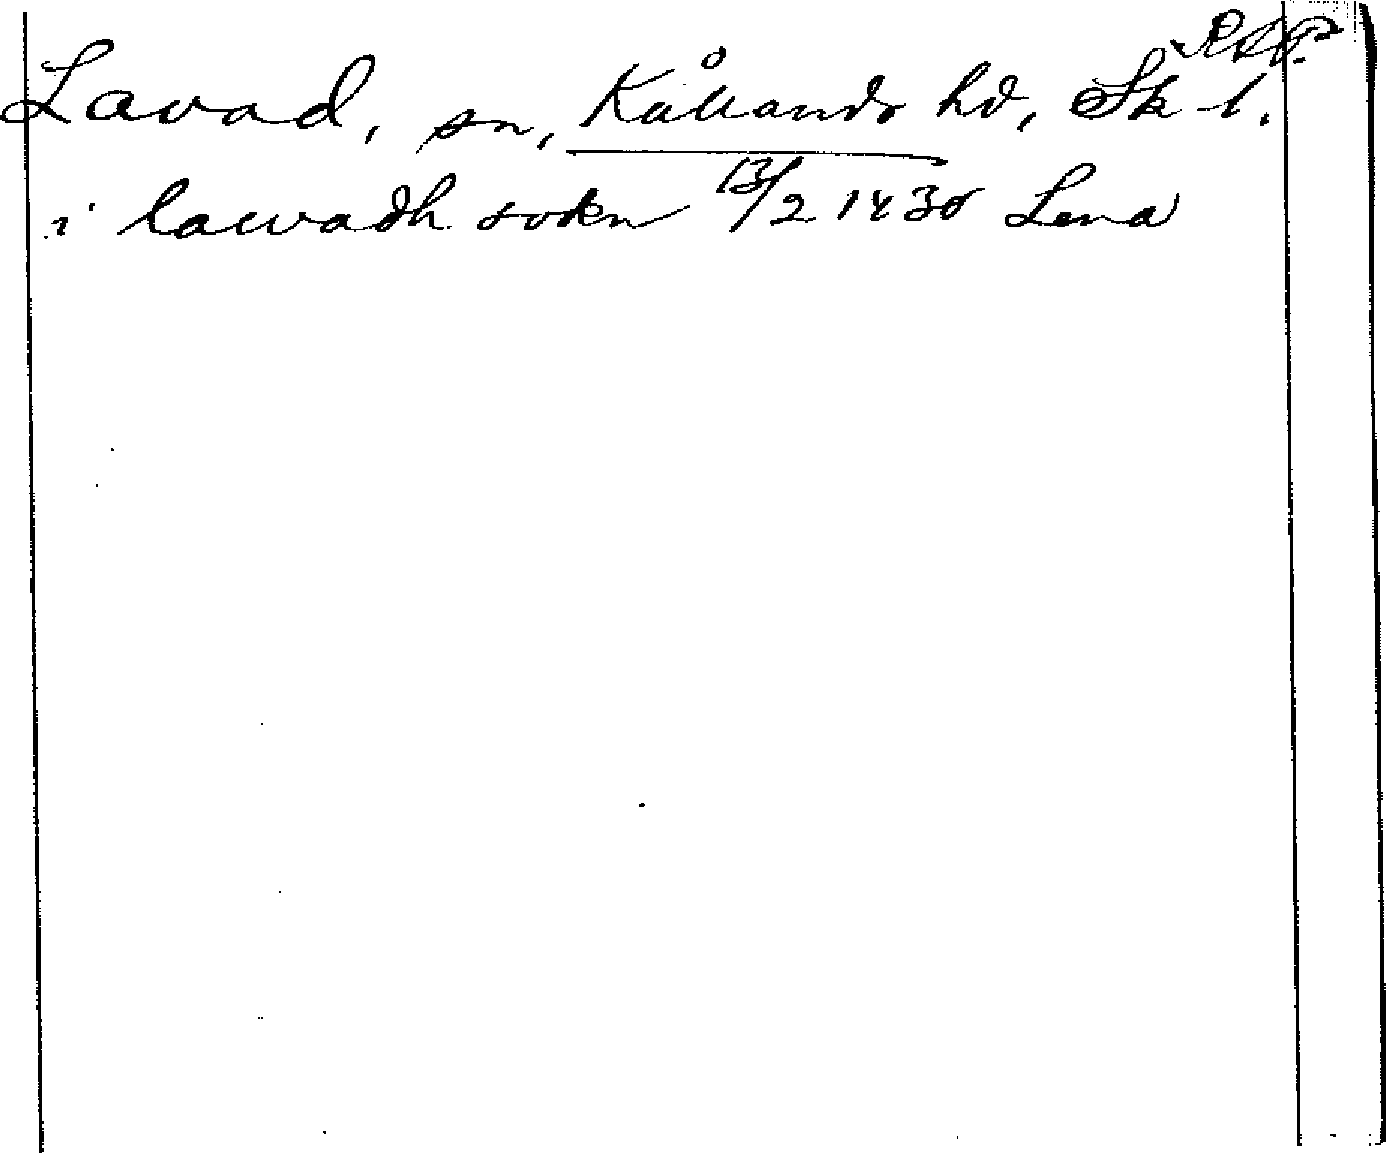 Lavad, sn, Kållands hd, Sk-l.
i lawadh sokn 13/2 1430 Lena